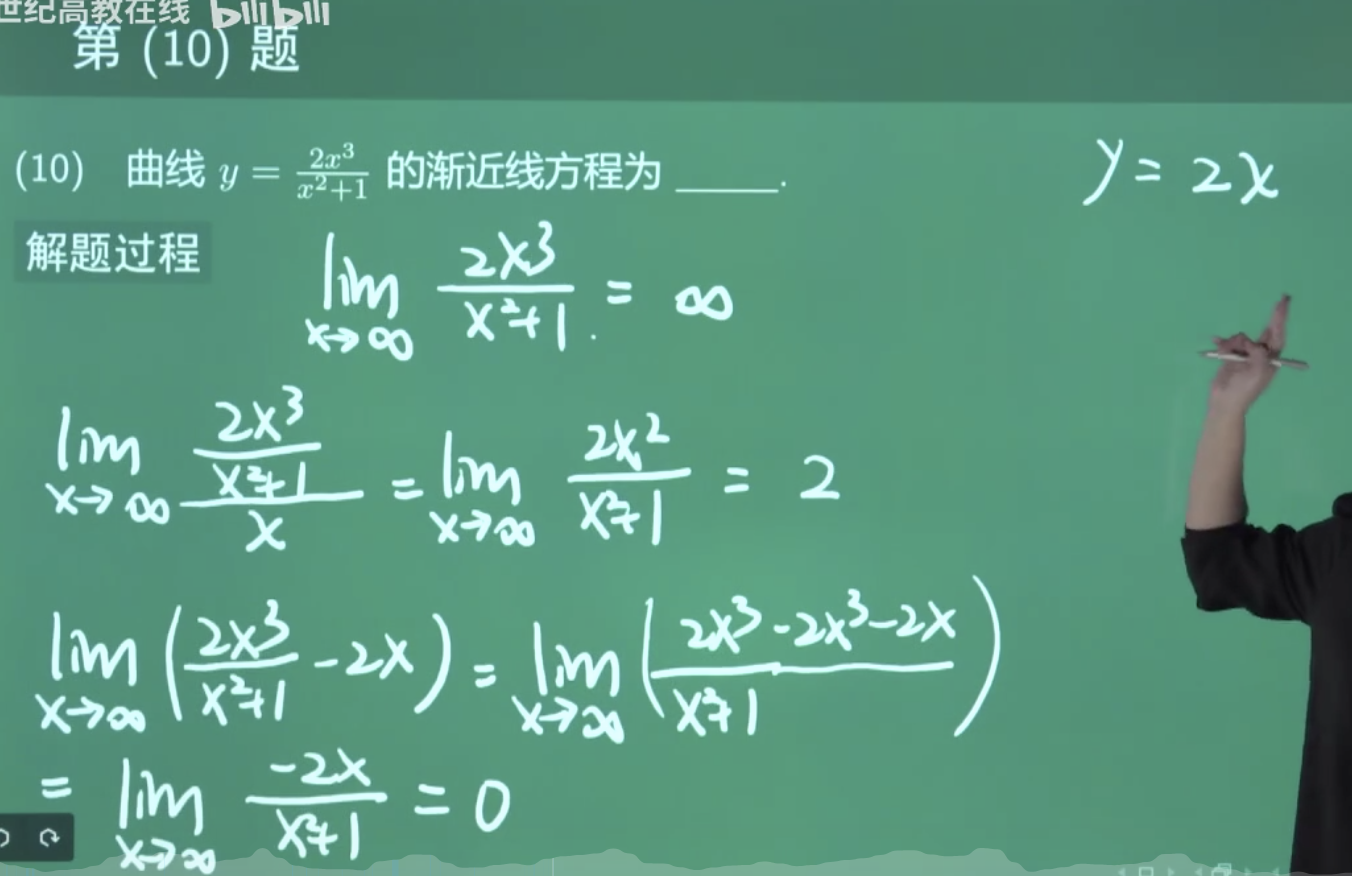 世纪高教在线 bilibili
第 (10) 题
(10) 曲线 y = \frac{2x^3}{x^2+1} 的渐近线方程为 _____.
y = 2x
解题过程
\lim_{x→∞} \frac{2x^3}{x^2+1} = ∞
\lim_{x→∞} \frac{\frac{2x^3}{x^2+1}}{x} = \lim_{x→∞} \frac{2x^2}{x^2+1} = 2
\lim_{x→∞} (\frac{2x^3}{x^2+1} - 2x) = \lim_{x→∞} (\frac{2x^3-2x^3-2x}{x^2+1})
= \lim_{x→∞} \frac{-2x}{x^2+1} = 0